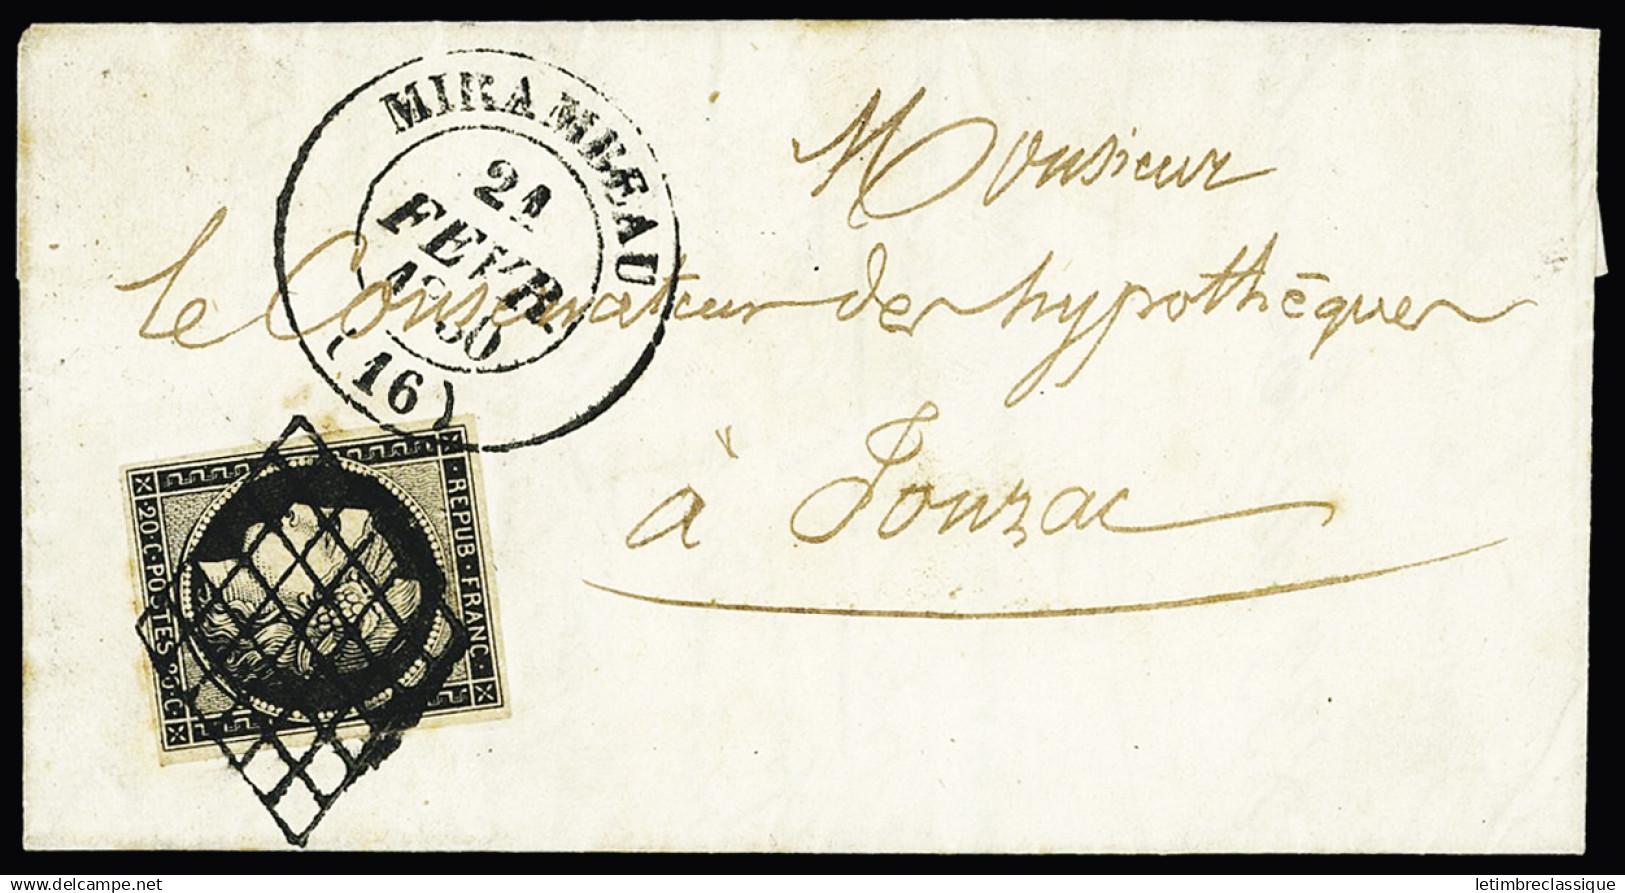 MIRAMBEAU
21
FEVR.
1850
(16)
Monsieur
le Conservateur des hypothèques
à Jonzac
REPUB. FRANC.
20.C.POSTES 20.C
delcampe.net
letimbreclassique